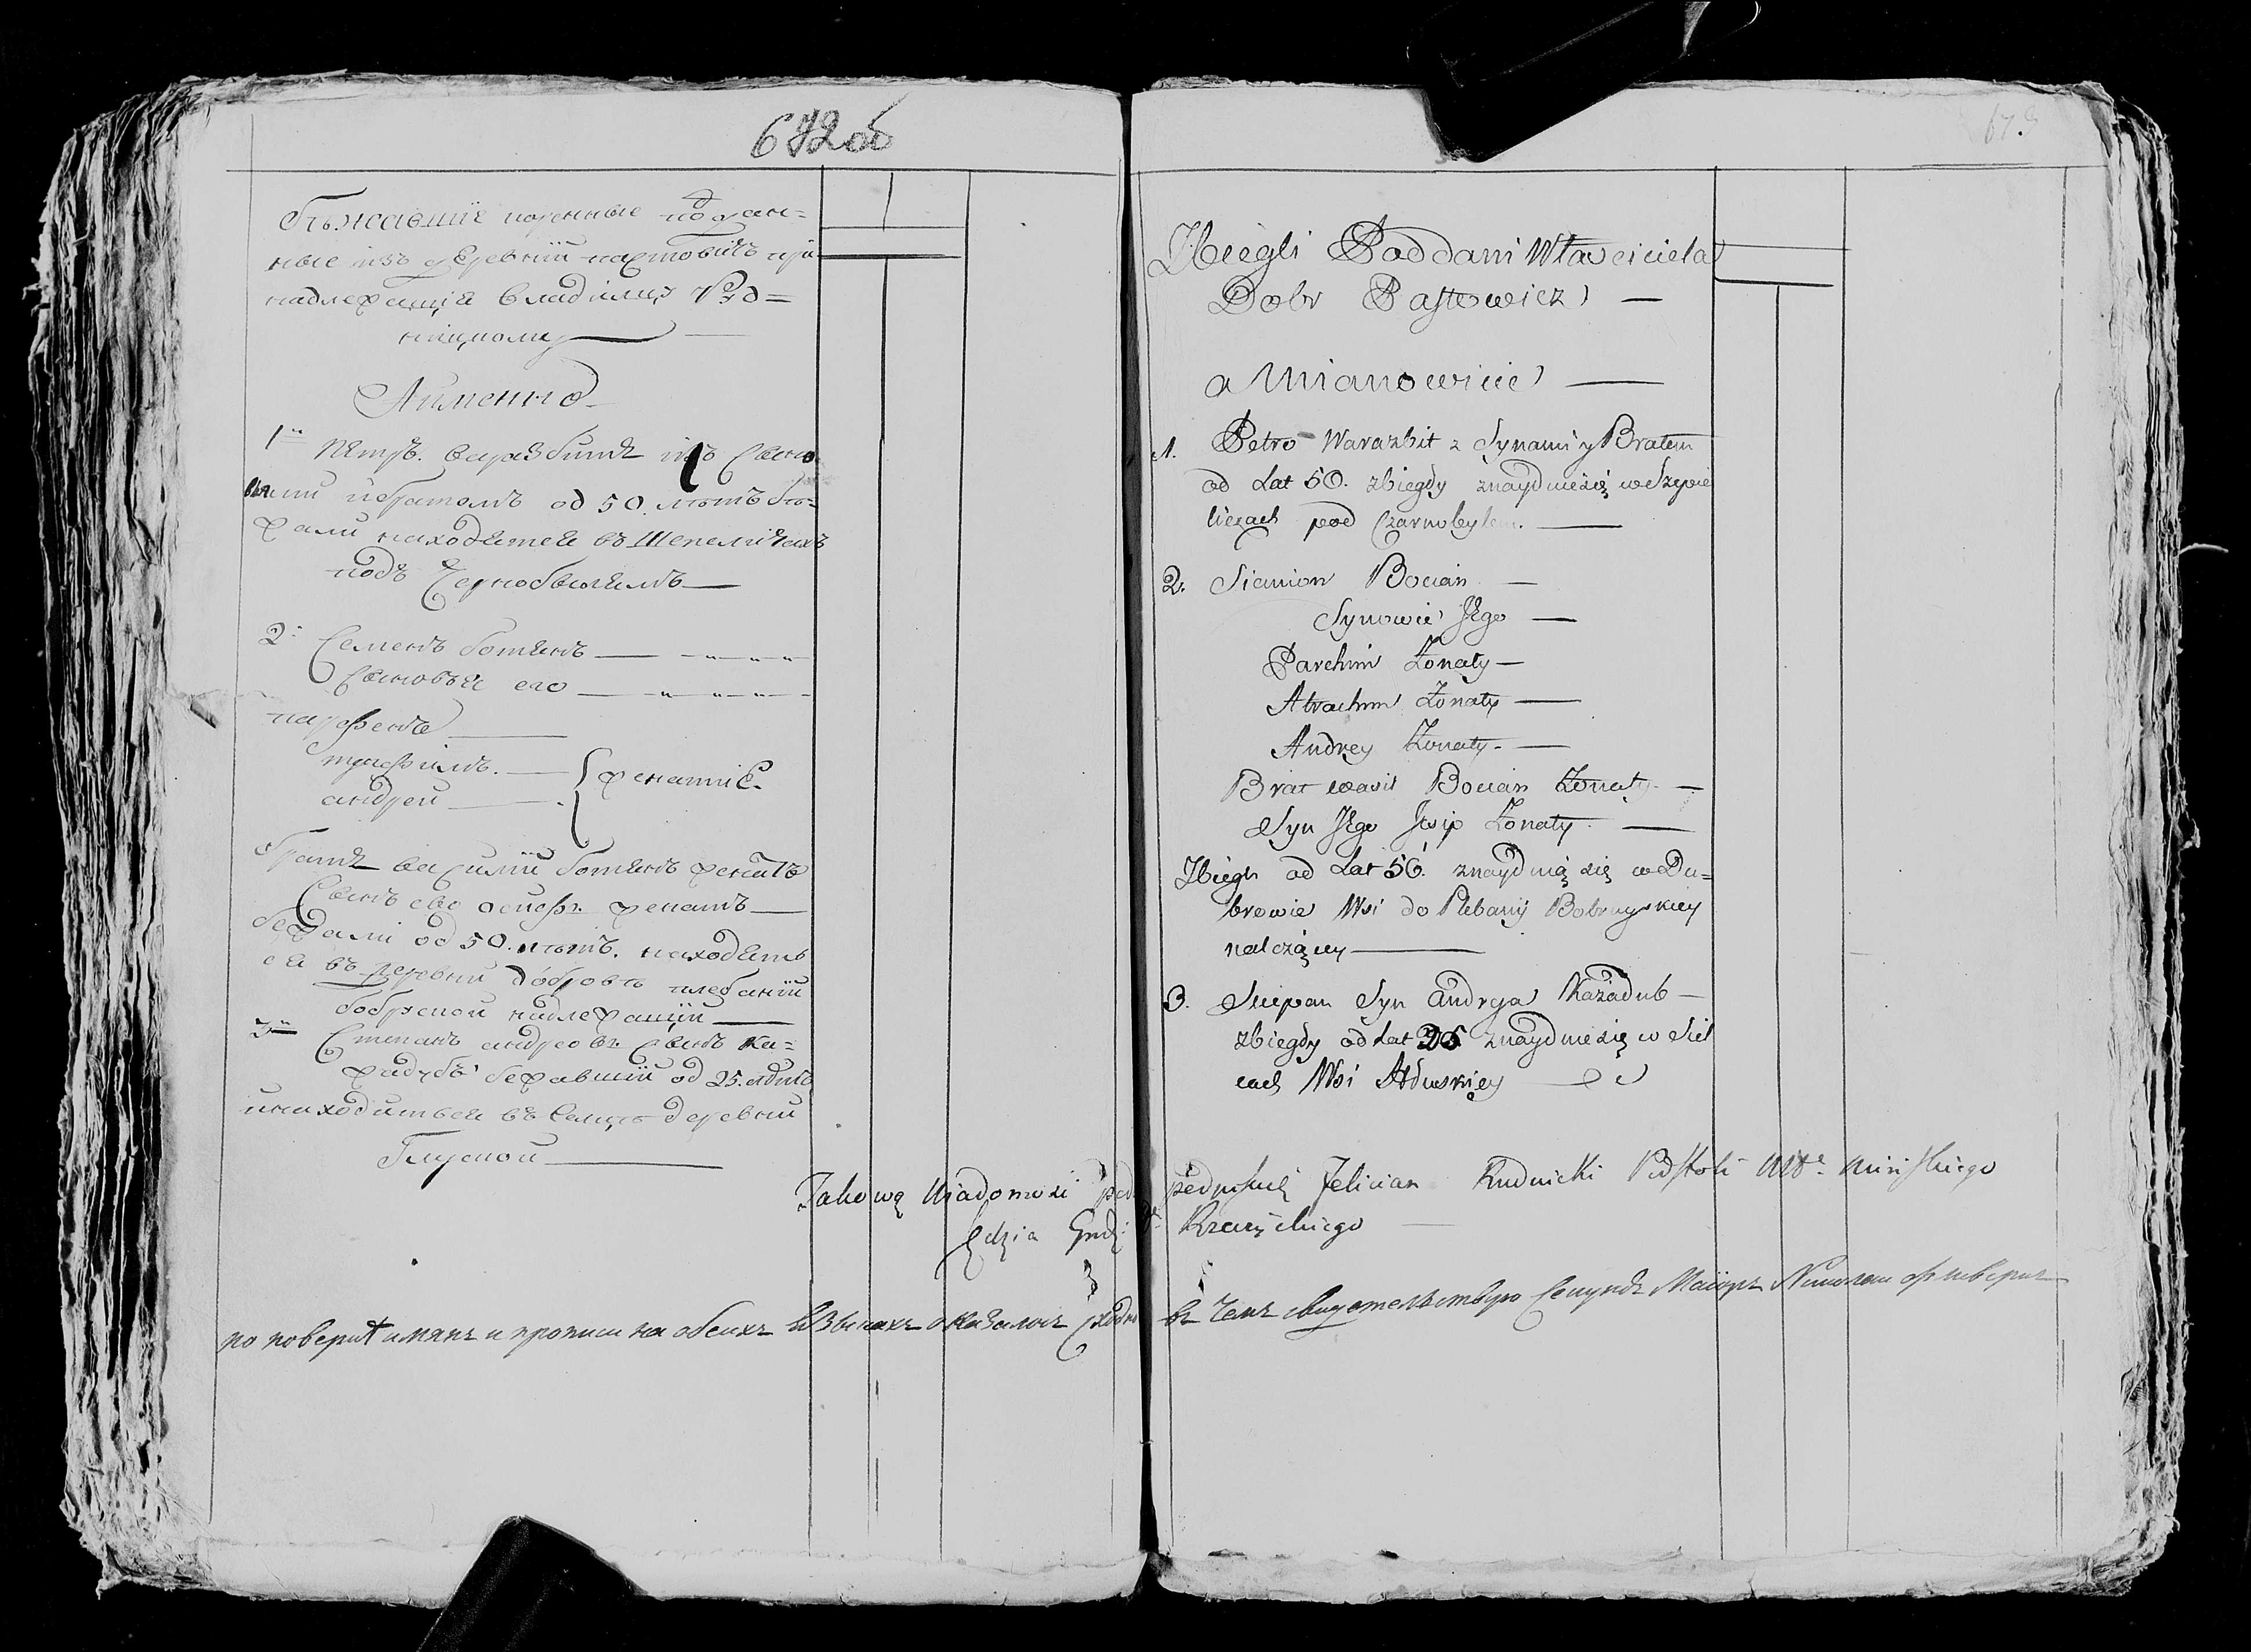 672 об
бѣжавшіе коренные поддан=
ные изъ деревнии пастовичъ при
надлежащіе владѣлцу Руд=
ницкому
Аименно
1й Петръ варазбитъ изъ Сыно
вями ибратомъ од 50. лѣтъ бѣ=
жали находятся въ Шепеличахъ
подъ Чернобылемъ
2й Семенъ ботянъ
Сыновья его
парфенъ
трофимъ.
андрей
женатые
братъ василий ботянъ женатъ
Сынъ ево осифъ женатъ
бежали од 50. лѣтъ. находять
ся въ деревни дубровѣ плебании
бобруской надлежащии
3й Степанъ андреевъ Сынъ Ка=
жадубъ бежавший од 25. лѣтъ
инаходиться въ Селцѣ деревни
Глуской
673
Zbiegli Poddani Własciciela
Dobr Pastowicz
a Mianowicie
1. Petro Warazbit z Synami y Bratem
od Lat 50. zbiegły znayduie się w Szepie
liczach pod Czarnobylem.
2. Siemion Bocian
Synowie Jego
Parchim Żonaty
Atrachim Żonaty
Andrey Żonaty
Brat wasil Bocian Żonaty
Syn Jego Jesip Żonaty
Zbiegli od Lat 50. znayduią się w Du=
browie Wsi do Plebanij Bobruyskiey
należącey
3. Sciepan Syn Andrya Każadub
zbiegły od Lat 25 znayduie się w Siel
cach Wsi Hłuskiey
Takową Wiadomosć podpisuię Felician Rudnicki Podstoli Wdª Minskiego
Sędzia Grodz: Rzeczyckiego
по поверке имянъ и прописи на обеихъ языкахъ оказалось сходно въ чемъ свидетельствую Секундъ Маиоръ Николай